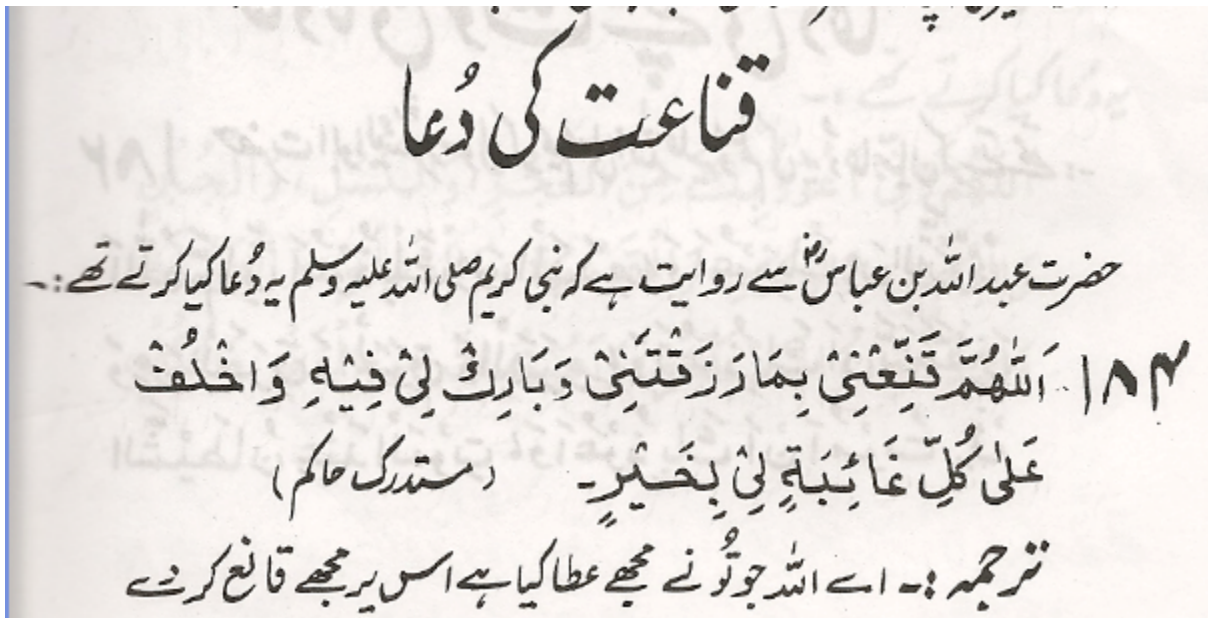 قناعت کی دُعا
حضرت عبد اللہ بن عباسؓ سے روایت ہے کہ نبی کریم صلی اللہ علیہ وسلم یہ دُعا کیا کرتے تھے :۔
۱۸۴ اَللّٰهُمَّ قَنِّعْنِیْ بِمَا رَزَقْتَنِیْ وَ بَارِكْ لِیْ فِیْهِ وَ اخْلُفْ
عَلٰی كُلِّ غَائِبَةٍ لِیْ بِخَیْرٍ۔ (مستدرک حاکم)
ترجمہ :۔ اے اللہ جو تُو نے مجھے عطا کیا ہے اس پر مجھے قانع کر دے